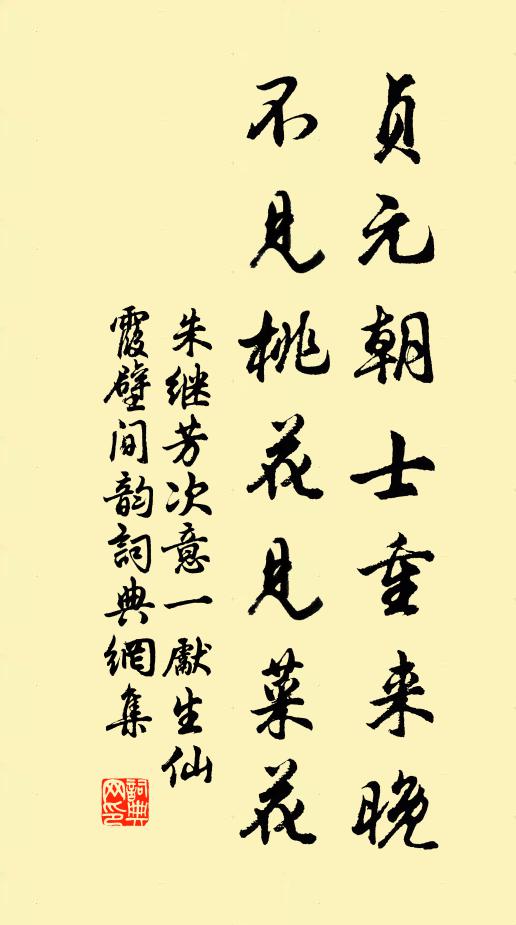 贞元朝士重来晚
不见桃花见菜花
朱继芳次意一献生仙
霞壁间韵詞典網集
詞典
网印